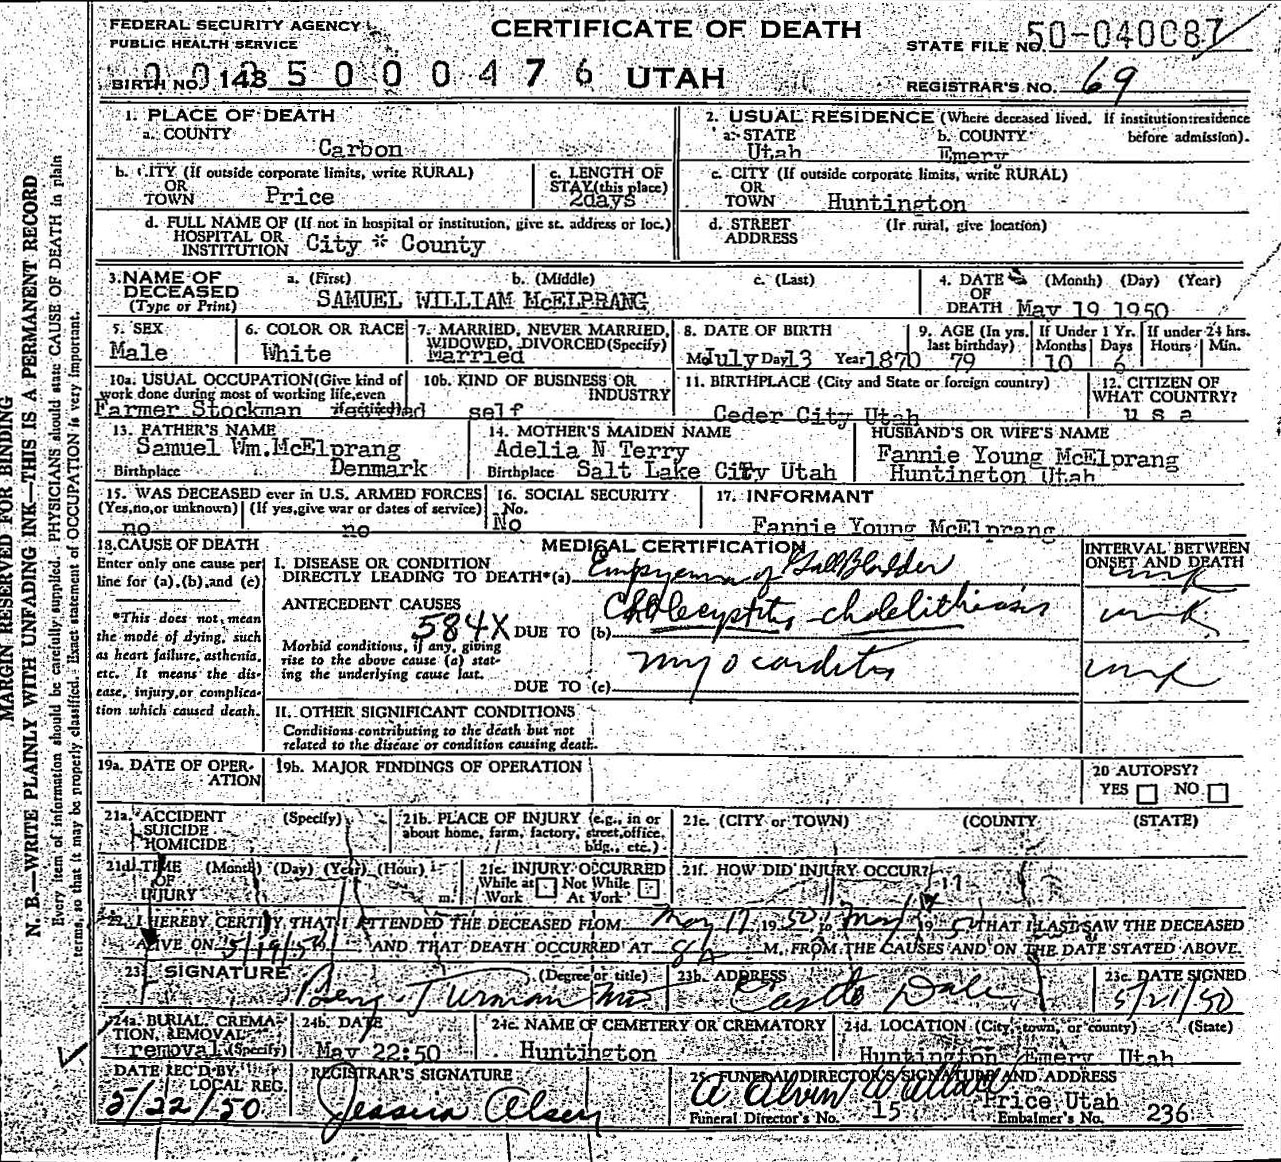 FEDERAL SECURITY AGENCY
PUBLIC HEALTH SERVICE
CERTIFICATE OF DEATH
STATE FILE NO. 50-040087
BIRTH NO. 143
0025000476
UTAH
REGISTRAR'S NO. 69
1. PLACE OF DEATH
a. COUNTY
Carbon
2. USUAL RESIDENCE (Where deceased lived. If institution: residence before admission).
a. STATE
Utah
b. COUNTY
Emery
b. CITY (If outside corporate limits, write RURAL)
OR
TOWN Price
c. LENGTH OF
STAY (this place)
2days
c. CITY (If outside corporate limits, write RURAL)
OR
TOWN Huntington
d. FULL NAME OF (If not in hospital or institution, give st. address or loc.)
HOSPITAL OR
INSTITUTION City * County
d. STREET
ADDRESS
(If rural, give location)
3. NAME OF
DECEASED
(Type or Print)
a. (First) b. (Middle) c. (Last)
SAMUEL WILLIAM McELPRANG
4. DATE (Month) (Day) (Year)
OF
DEATH May 19 1950
5. SEX
Male
6. COLOR OR RACE
White
7. MARRIED, NEVER MARRIED,
WIDOWED, DIVORCED (Specify)
Married
8. DATE OF BIRTH
Mo July Day 13 Year 1870
9. AGE (In yrs.
last birthday)
79
If Under 1 Yr.
Months Days
10 6
If under 24 hrs.
Hours Min.
10a. USUAL OCCUPATION (Give kind of
work done during most of working life, even
if retired)
Farmer Stockman
10b. KIND OF BUSINESS OR
INDUSTRY
self
11. BIRTHPLACE (City and State or foreign country)
Ceder City Utah
12. CITIZEN OF
WHAT COUNTRY?
u s a
13. FATHER'S NAME
Samuel Wm. McElprang
Birthplace Denmark
14. MOTHER'S MAIDEN NAME
Adelia N Terry
Birthplace Salt Lake City Utah
HUSBAND'S OR WIFE'S NAME
Fannie Young McElprang
Huntington Utah
15. WAS DECEASED ever in U.S. ARMED FORCES
(Yes, no, or unknown) (If yes, give war or dates of service)
no no
16. SOCIAL SECURITY
No.
No
17. INFORMANT
Fannie Young McElprang
18. CAUSE OF DEATH
Enter only one cause per
line for (a), (b), and (c)
*This does not mean
the mode of dying, such
as heart failure, asthenia,
etc. It means the dis-
ease, injury, or complica-
tion which caused death.
MEDICAL CERTIFICATION
I. DISEASE OR CONDITION
DIRECTLY LEADING TO DEATH*(a) Empyema of Gall Bladder
ANTECEDENT CAUSES
584X DUE TO (b) Cholecystitis cholelithiasis
Morbid conditions, if any, giving
rise to the above cause (a) stat-
ing the underlying cause last.
myocarditis
DUE TO (c)
INTERVAL BETWEEN
ONSET AND DEATH
unk
unk
unk
II. OTHER SIGNIFICANT CONDITIONS
Conditions contributing to the death but not
related to the disease or condition causing death.
19a. DATE OF OPER-
ATION
19b. MAJOR FINDINGS OF OPERATION
20 AUTOPSY?
YES NO
21a. ACCIDENT
SUICIDE
HOMICIDE
(Specify)
21b. PLACE OF INJURY (e.g., in or
about home, farm, factory, street, office,
bldg., etc.)
21c. (CITY or TOWN) (COUNTY) (STATE)
21d. TIME (Month) (Day) (Year) (Hour)
OF
INJURY m.
21e. INJURY OCCURRED
While at Work Not While At Work
21f. HOW DID INJURY OCCUR?
22. I HEREBY CERTIFY THAT I ATTENDED THE DECEASED FROM May 17 1950 to May 19 50 THAT I LAST SAW THE DECEASED
ALIVE ON 5/19/50 AND THAT DEATH OCCURRED AT 8A M. FROM THE CAUSES AND ON THE DATE STATED ABOVE.
23a. SIGNATURE (Degree or title)
Benj. Turman MD
23b. ADDRESS
Castle Dale
23c. DATE SIGNED
5/21/50
24a. BURIAL, CREMA-
TION, REMOVAL
removal (Specify)
24b. DATE
May 22:50
24c. NAME OF CEMETERY OR CREMATORY
Huntington
24d. LOCATION (City, town, or county) (State)
Huntington Emery Utah
DATE REC'D BY
LOCAL REG.
5/22/50
REGISTRAR'S SIGNATURE
Jessica Olsen
25. FUNERAL DIRECTOR'S SIGNATURE AND ADDRESS
A Alvin Wallace
Price Utah
Funeral Director's No. 15
Embalmer's No. 236
MARGIN RESERVED FOR BINDING
N. B.—WRITE PLAINLY WITH UNFADING INK—THIS IS A PERMANENT RECORD
Every item of information should be carefully supplied. PHYSICIANS should state CAUSE OF DEATH in plain
terms, so that it may be properly classified. Exact statement of OCCUPATION is very important.